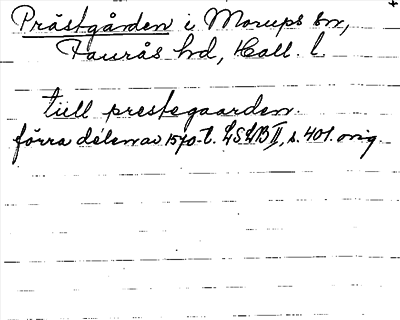 Prästgården i Morups sn,
Faurås hd, Hall. l.
till prestegaarden.
förra delen av 1570-t. LSLB II, s. 401. orig.